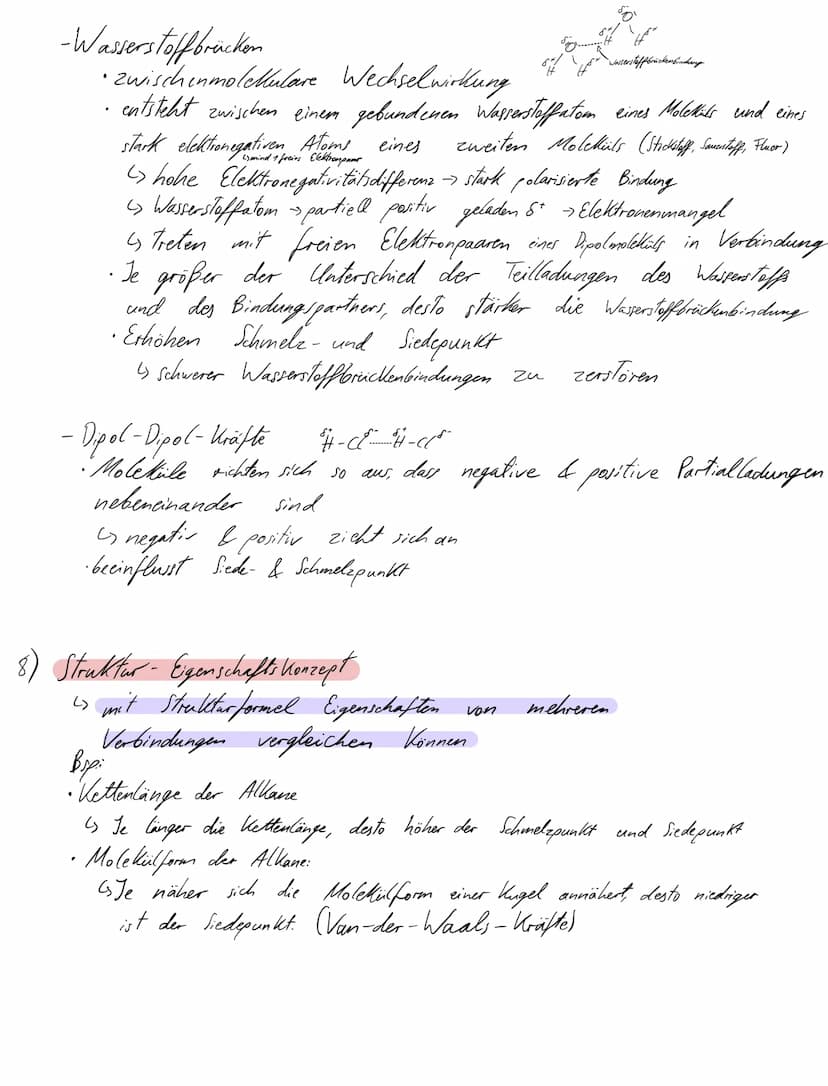 -Wasserstoffbrücken
δ⁻ O δ⁺ H H δ⁺
δ⁻ O δ⁺ H H δ⁺ Wasserstoffbrückenbindung
• zwischenmolekulare Wechselwirkung
• entsteht zwischen einem gebundenen Wasserstoffatom eines Moleküls und eines
stark elektronegativen Atoms eines zweiten Moleküls (Stickstoff, Sauerstoff, Fluor)
↳ mind. 1 freies Elektronpaar
↳ hohe Elektronegativitätsdifferenz → stark polarisierte Bindung
↳ Wasserstoffatom → partiell positiv geladen δ⁺ → Elektronenmangel
↳ Treten mit freien Elektronpaaren eines Dipolmoleküls in Verbindung
• Je größer der Unterschied der Teilladungen des Wasserstoffs
und des Bindungspartners, desto stärker die Wasserstoffbrückenbindung
• Erhöhen Schmelz- und Siedepunkt
↳ schwerer Wasserstoffbrückenbindungen zu zerstören
- Dipol-Dipol-Kräfte δ⁺H-Clδ⁻......δ⁺H-Clδ⁻
• Moleküle richten sich so aus, dass negative & positive Partialladungen
nebeneinander sind
↳ negativ & positiv zieht sich an
• beeinflusst Siede- & Schmelzpunkt
8) Struktur-Eigenschaftskonzept
↳ mit Strukturformel Eigenschaften von mehreren
Verbindungen vergleichen können
Bsp:
• Kettenlänge der Alkane
↳ Je länger die Kettenlänge, desto höher der Schmelzpunkt und Siedepunkt
• Molekülform der Alkane:
↳ Je näher sich die Molekülform einer Kugel annähert, desto niedriger
ist der Siedepunkt. (Van-der-Waals-Kräfte)